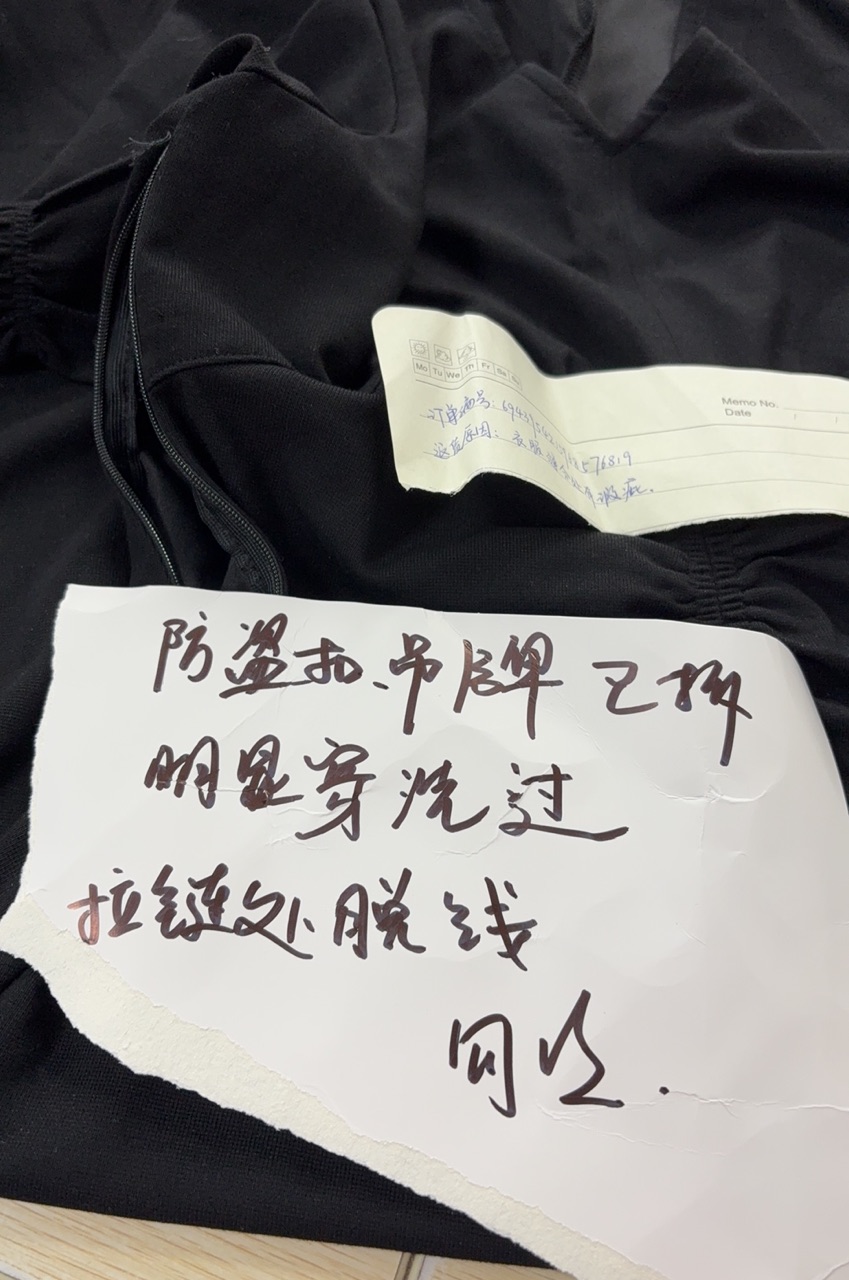 Mo Tu We Th Fr Sa Su
Memo No.
Date
订单编号:
退货原因: 衣服
瑕疵.
防盗扣.吊牌已拆
明显穿洗过
拉链处脱线